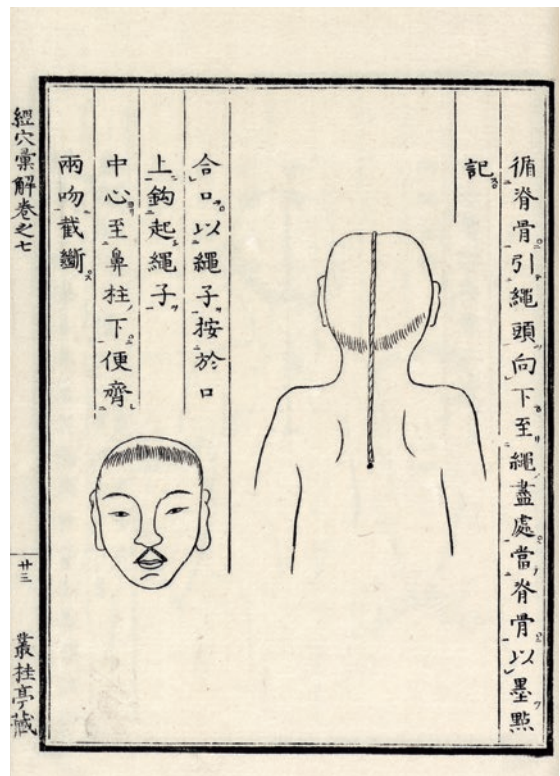 循脊骨引繩頭向下至繩盡處當脊骨以墨點
記
合口以繩子按於口
上鈎起繩子
中心至鼻柱下便齊
兩吻截斷
經穴彙解卷之七
廿三
叢桂亭藏